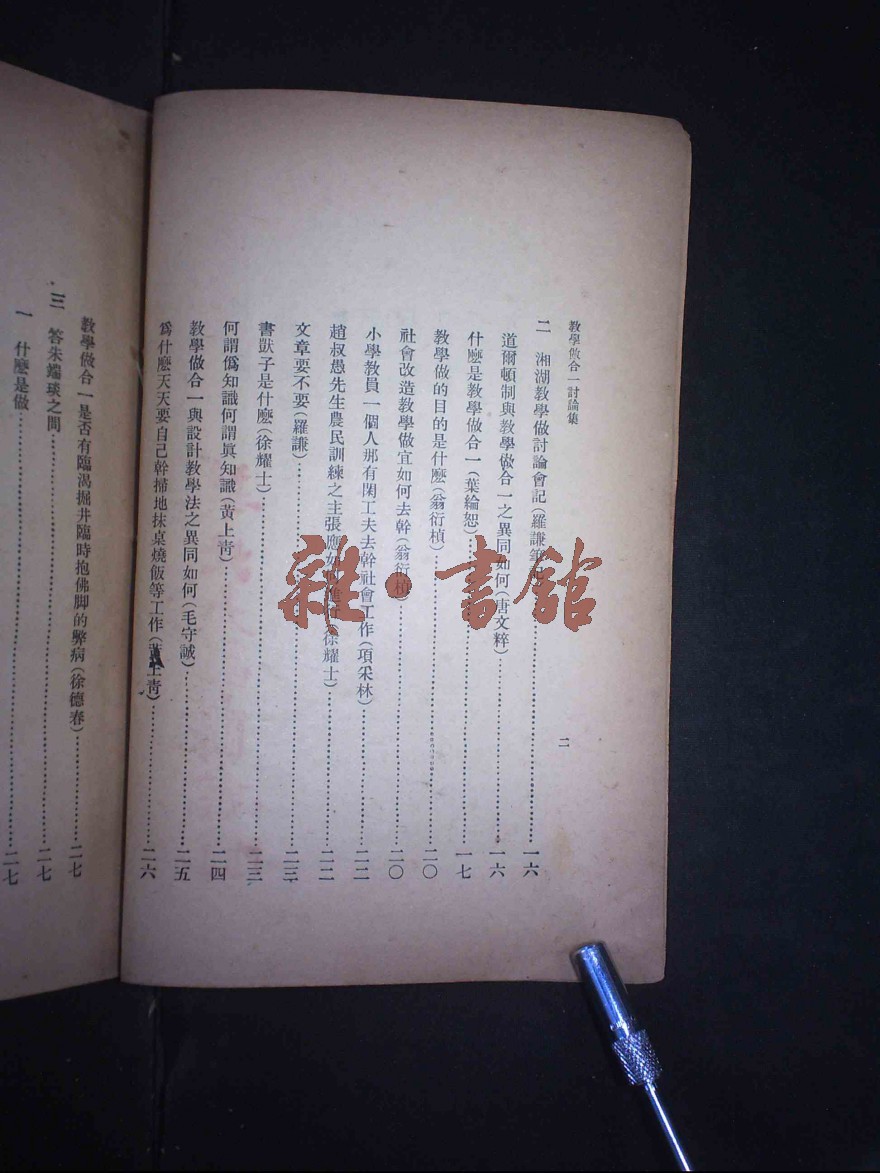 教學做合一討論集
二
二 湘湖教學做討論會記(羅謙……一六
道爾頓制與教學做合一之異同如何(唐文粹)……一六
什麽是教學做合一(葉綸恕)……一七
教學做的目的是什麽(翁衍楨)……二〇
社會改造教學做宜如何去幹(翁衍楨)……二〇
小學教員一個人那有閑工夫去幹社會工作(項采林)……二二
趙叔愚先生農民訓練之主張應如(徐耀士)……二二
文章要不要(羅謙)……二三
書獃子是什麽(徐耀士)……二三
何謂僞知識何謂眞知識(黃上靑)……二四
教學做合一與設計教學法之異同如何(毛守誠)……二五
爲什麽天天要自己幹掃地抹桌燒飯等工作(黃上靑)……二六
教學做合一是否有臨渴掘井臨時抱佛脚的弊病(徐德春)……二七
三 答朱端琰之間……二七
一 什麽是做……二七
雜·書館